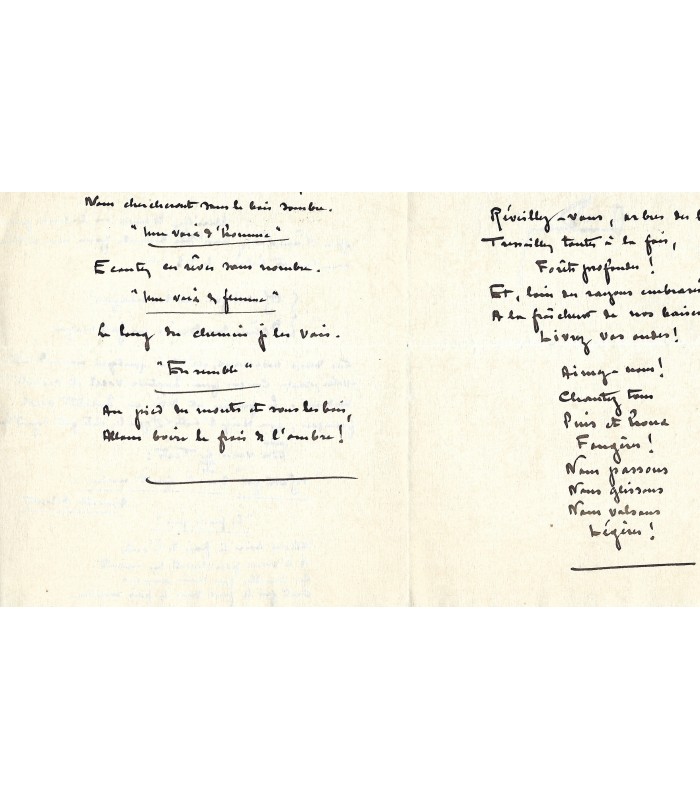 Nous chercherons sous le bois sombre.
"Une voix d'homme"
Ecoutez en rêves sans nombre.
"Une voix de femme"
Le long du chemin je les vois.
"Ensemble"
Au pied des monts et sous les bois,
Allons boire le frais de l'ombre!
Réveillez-vous, arbres des
Tressaillez toutes à la fois,
Forêts profondes!
Et, loin des rayons
A la fraîcheur de nos
Livrez vos ondes!
Aimez-nous!
Chantez tous
Pins et houx
Fougères!
Nous passons
Nous glissons
Nous valsons
Légères!